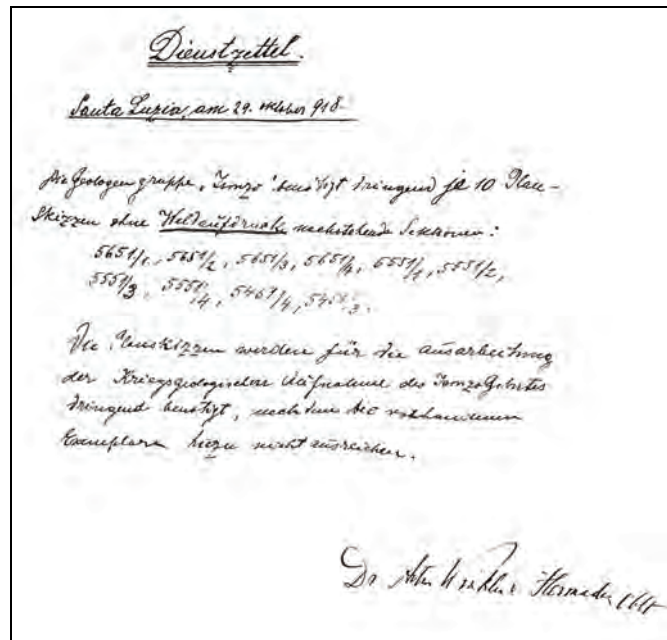 Dienstzettel.
Santa Luzia, am 29. Oktober 918
Die Geologengruppe „Isonzo“ benötigt dringend je 10 Plan-
Skizzen ohne Waldaufdruck nachstehende Sektionen:
5651/1, 5651/2, 5651/3, 5651/4, 5551/1, 5551/2,
5551/3, 5551/4, 5451/4, 5451/3.
Die Planskizzen werden für die Ausarbeitung
der Kriegsgeologischen Aufnahme des Isonzo Gebietes
dringend benötigt, nachdem die vorhandenen
Exemplare hiezu nicht ausreichen.
Dr Artur Winkler Hermaden